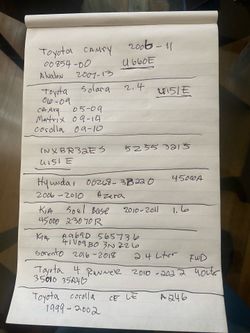 Toyota CAMRY 2006-11
00854-00 U660E
Avalon 2007-13
Toyota Solara 2.4
06-09 U151E
CAMRY 05-09
Matrix 09-14
corolla 09-10
5235 3215
U151E
Hyundai 00268-3B220 45000A
2006-2010 Azera
KIA Soul BASE 2010-2011 1.6
45000 23070R
KIA A2692D 565736
Sorento 2016-2018 2.4 Liter FWD
Toyota 4 Runner 2010-2022 4.0 Liter
35010 35A40
Toyota corolla CE LE A246
1999-2002